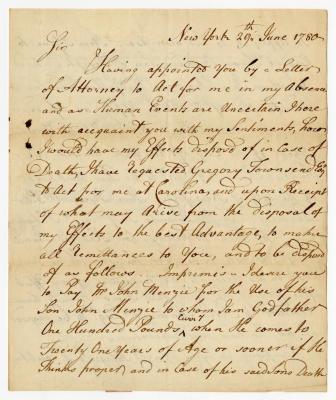 New York 29th June 1780
Sir
Having appointed you by a Letter
of Attorney to Act for me in my Absence
and as Human Events are Uncertain I here
with acquaint you with my Sentiments, how
I would have my Effects disposd of in Case of
Death, I have requested Gregory Townsend Esqr
to Act for me at Carolina, and upon Receipt
of what may Arise from the disposal of
my Effects to the best Advantage, to make
all remittances to You, and to be disposd
of as follows. Imprimis I desire you
to Pay Mr John Menzie for the Use of his
Son John Menzie to whom I am Godfather
One Hundred Pounds Curr.y when He comes to
Twenty One Years of Age or sooner if He
thinks proper, and in Case of his said Sons Death